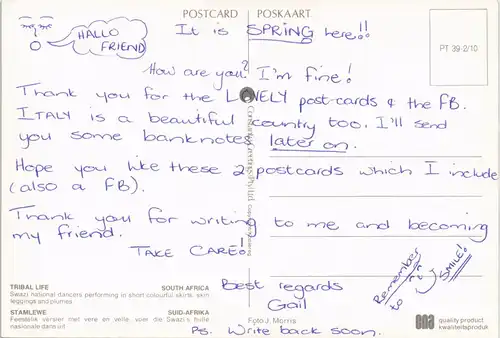 POSTCARD POSKAART
HALLO
FRIEND
It is SPRING here!!
PT 39-2/10
How are you? I'm fine!
Thank you for the LOVELY post-cards & the FB.
ITALY is a beautiful country too. I'll send
you some banknotes later on.
Hope you like these 2 postcards which I include
(also a FB).
Thank you for writing to me and becoming
my friend.
TAKE CARE!
Remember
to
SMILE!
TRIBAL LIFE SOUTH AFRICA
Swazi national dancers performing in short colourful skirts, skin
leggings and plumes
STAMLEWE SUID-AFRIKA
Feestelik versier met vere en velle, voer die Swazi's hulle
nasionale dans uit
Best regards
Gail
Foto J. Morris
Ps. Write back soon.
quality product
kwaliteitsproduk